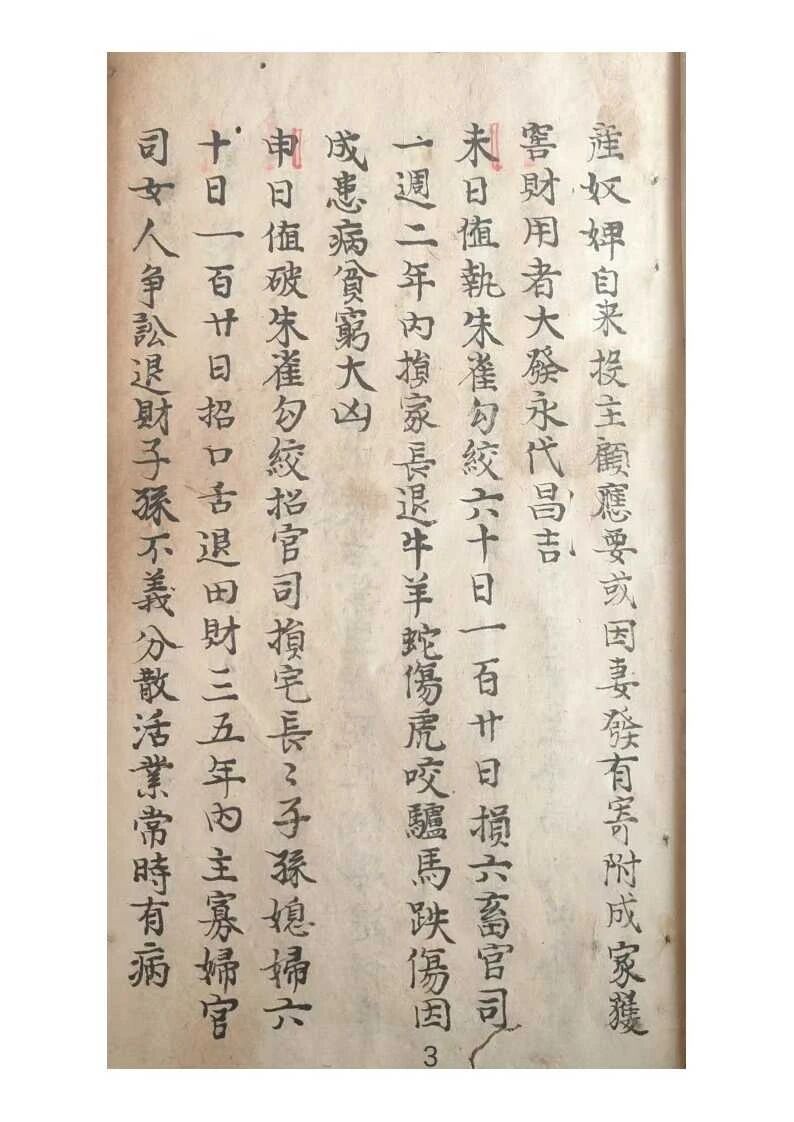 產奴婢自来投主顧應要或因妻發有寄附成家獲
窖財用者大發永代昌吉
未日值執朱雀勾絞六十日一百廿日損六畜官司
一週二年內損家長退牛羊蛇傷虎咬驢馬跌傷因
成患病貧窮大凶
申日值破朱雀勾絞招官司損宅長〻子孫媳婦六
十日一百廿日招口舌退田財三五年內主寡婦官
司女人争訟退財子孫不義分散活業常時有病
3